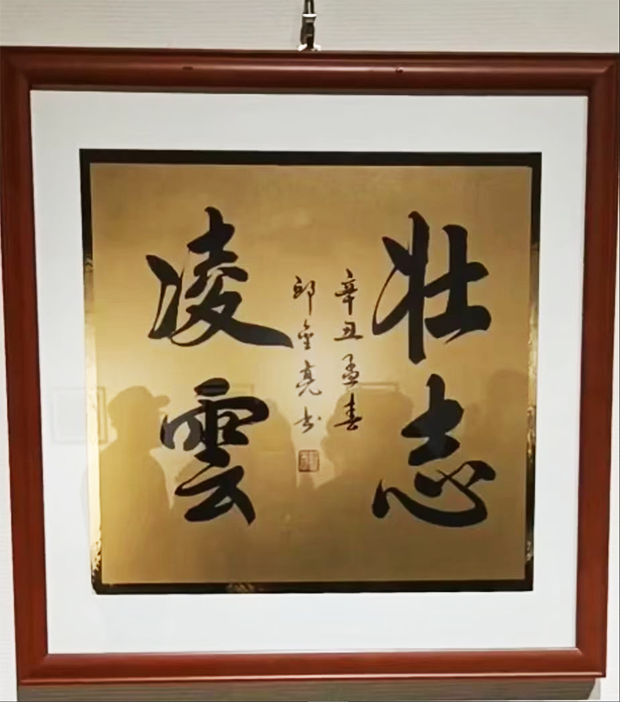 壮志
凌雲
辛丑孟春
郎金亮书